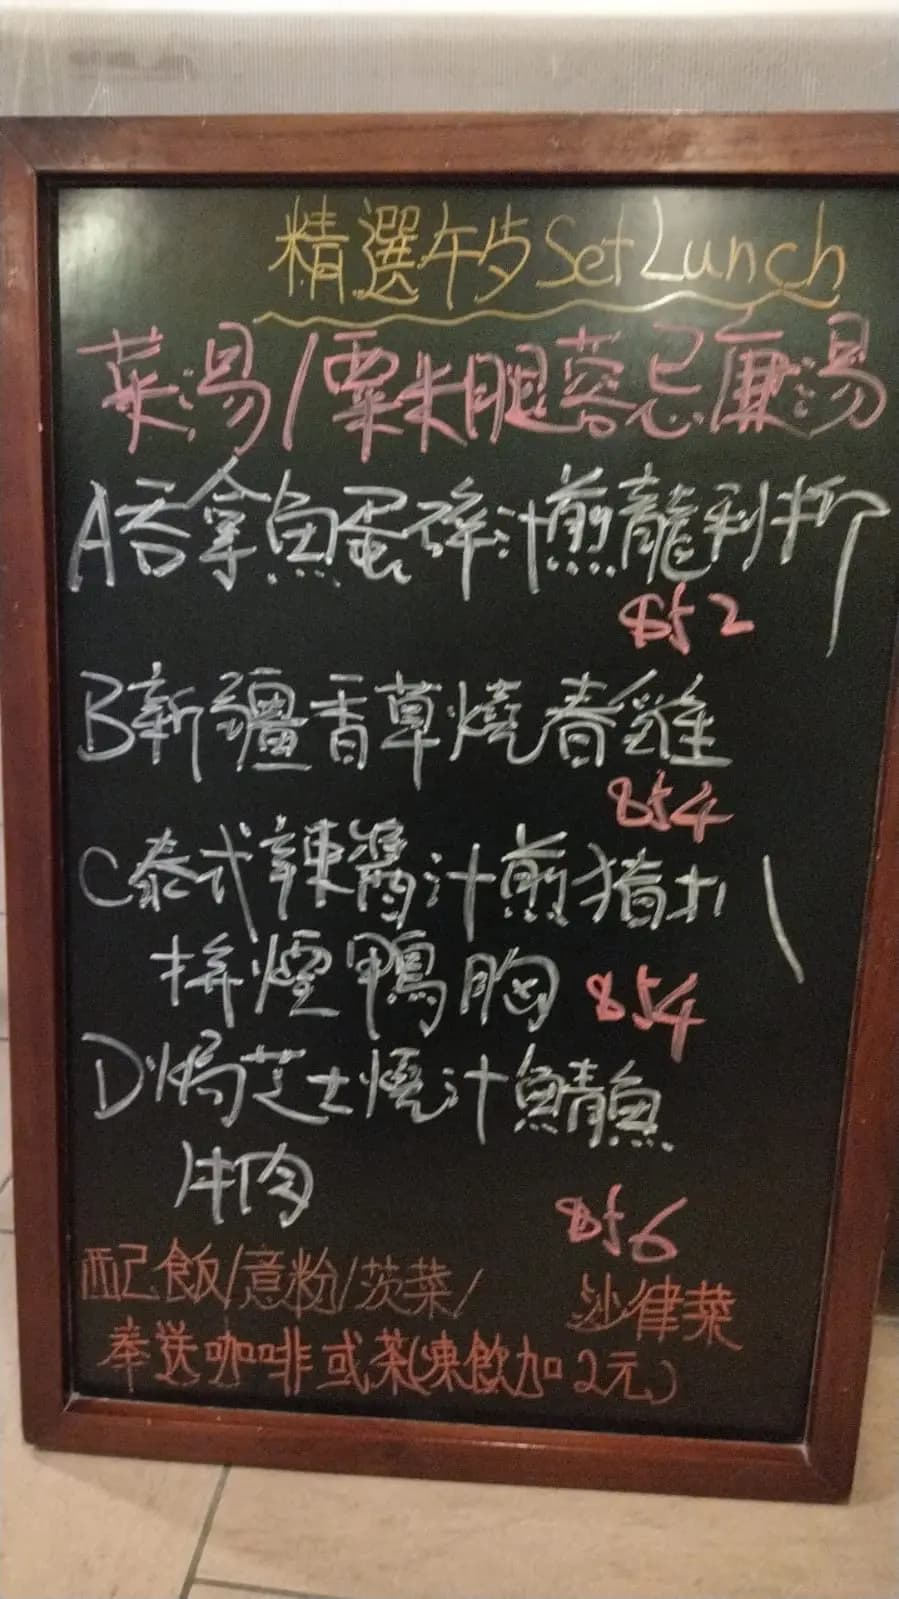 精選午歺Set Lunch
菜湯/粟米腿蓉忌廉湯
A吞拿魚蛋碎汁煎龍利折
$52
B新疆香草燒春雞
$54
C泰式辣醬汁煎猪扒
拼煙鴨胸 $54
D焗芝士燒汁鯖魚
牛肉
$56
配飯/意粉/茨菜/沙律菜
奉送咖啡或茶(凍飲加2元)